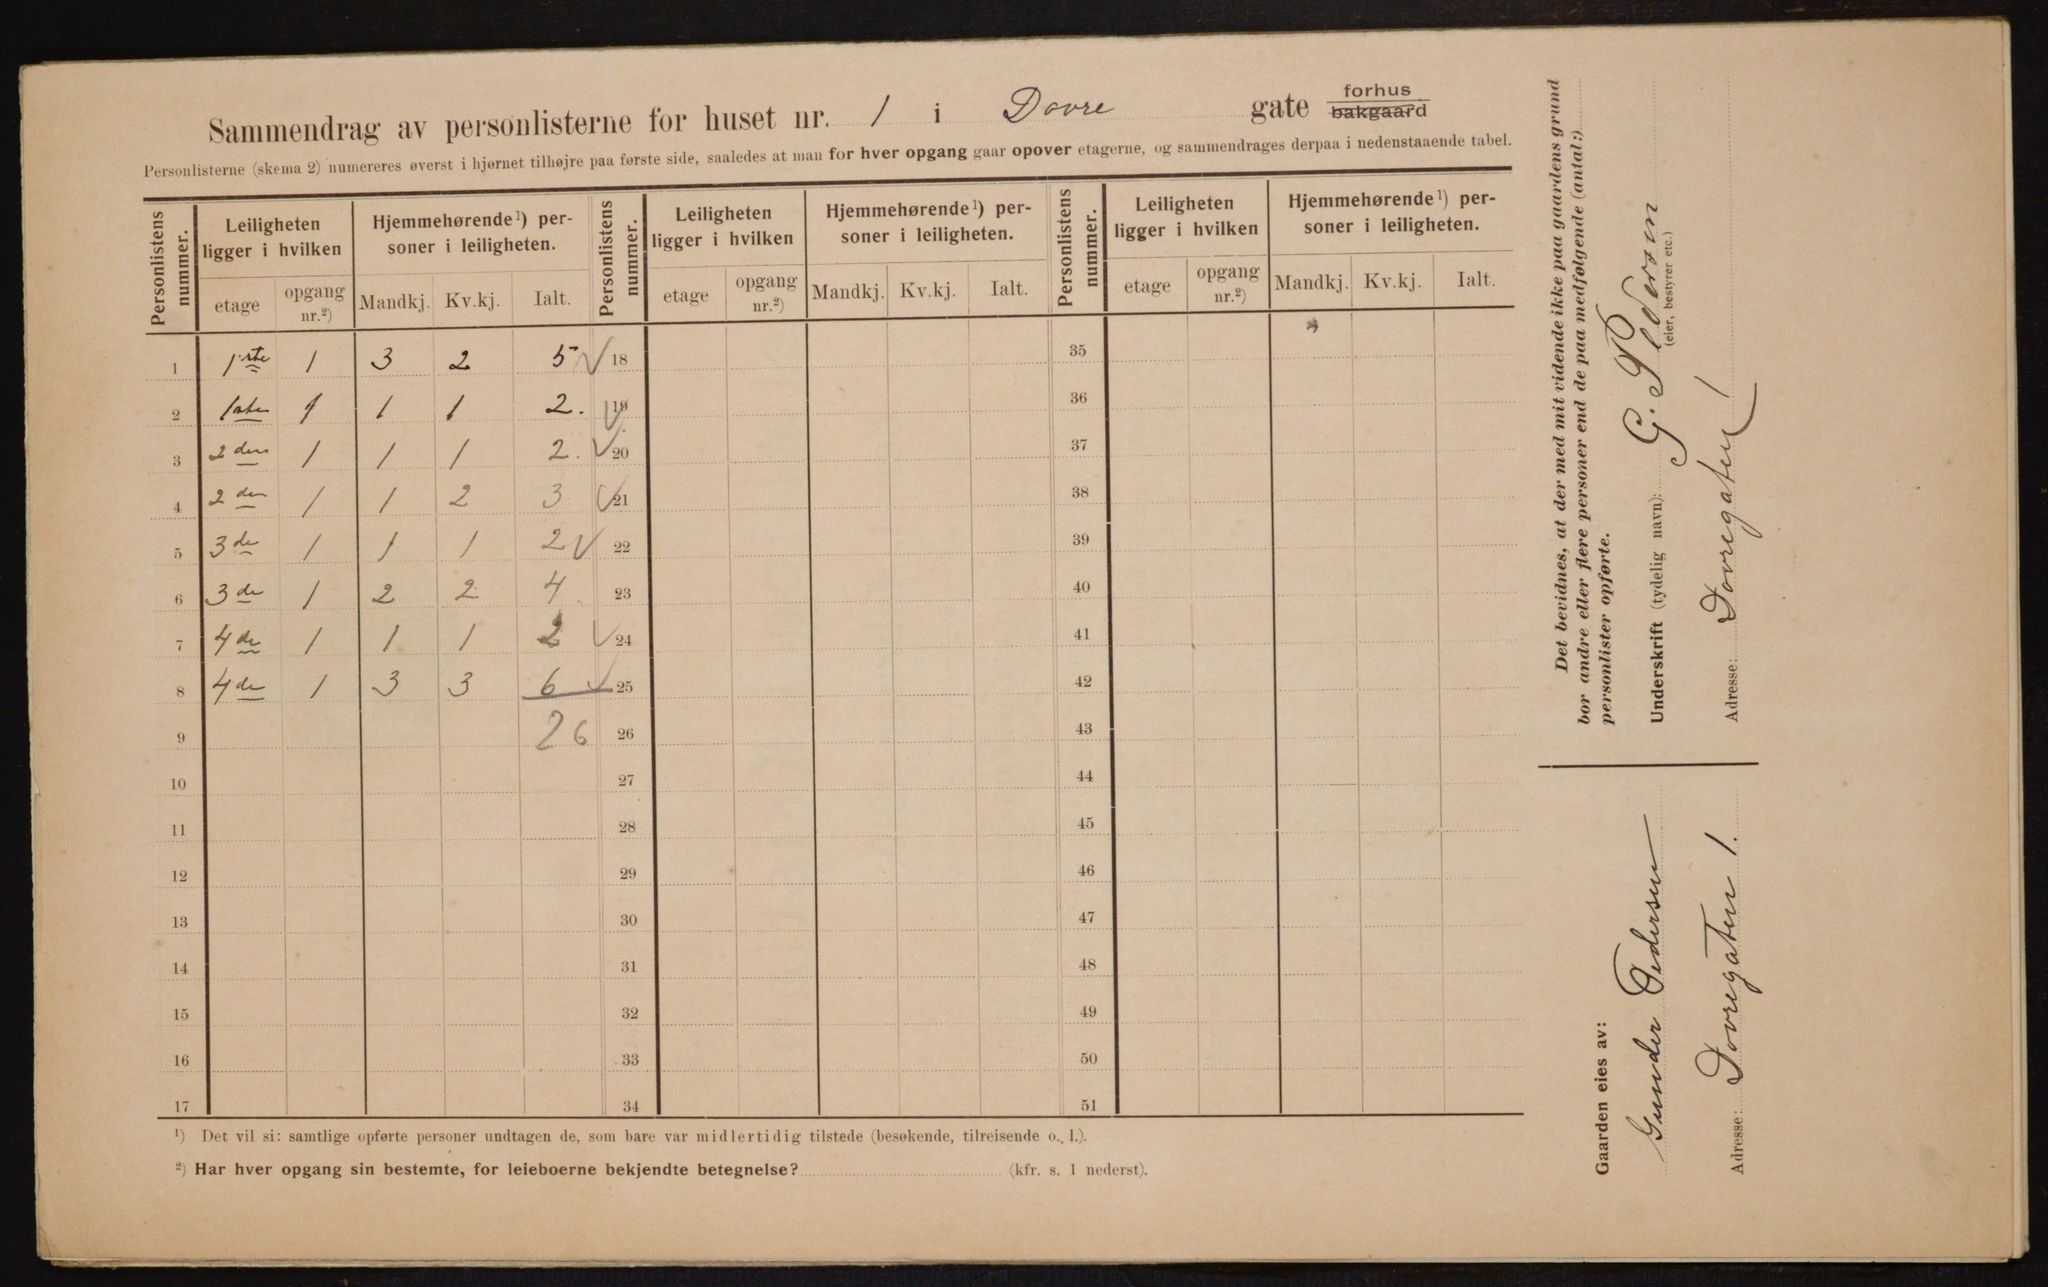 Sammendrag av personlisterne for huset nr. 1 i Dovre gate forhus bakgaard
Personlisterne (skema 2) numereres øverst i hjørnet tilhøjre paa første side, saaledes at man for hver opgang gaar opover etagerne, og sammendrages derpaa i nedenstaaende tabel.
Personlistens nummer. Leiligheten ligger i hvilken Hjemmehørende¹) personer i leiligheten. Personlistens nummer. Leiligheten ligger i hvilken Hjemmehørende¹) personer i leiligheten. Personlistens nummer. Leiligheten ligger i hvilken Hjemmehørende¹) personer i leiligheten.
etage opgang nr.²) Mandkj. Kv.kj. Ialt. etage opgang nr.²) Mandkj. Kv.kj. Ialt. etage opgang nr.²) Mandkj. Kv.kj. Ialt.
1 1ste 1 3 2 5 18 35
2 1ste 1 1 1 2. 19 36
3 2den 1 1 1 2. 20 37
4 2den 1 1 2 3 21 38
5 3de 1 1 1 2 22 39
6 3de 1 2 2 4 23 40
7 4de 1 1 1 2 24 41
8 4de 1 3 3 6 25 42
9 26 26 43
10 27 44
11 28 45
12 29 46
13 30 47
14 31 48
15 32 49
16 33 50
17 34 51
¹) Det vil si: samtlige opførte personer undtagen de, som bare var midlertidig tilstede (besøkende, tilreisende o. l.).
²) Har hver opgang sin bestemte, for leieboerne bekjendte betegnelse? (kfr. s. 1 nederst).
Det bevidnes, at der med mit vidende ikke paa gaardens grund
bor andre eller flere personer end de paa medfølgende (antal:)
personlister opførte.
Underskrift (tydelig navn): G. Pedersen
(eier, bestyrer etc.)
Adresse: Dovregaten 1
Gaarden eies av:
Gunder Pedersen
Adresse: Dovregaten 1.